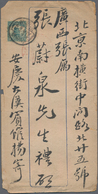 北京南横街中間路北廿五號
廣西張寓
張蔚泉先生禮啟
安慶大漢賓館楊寄